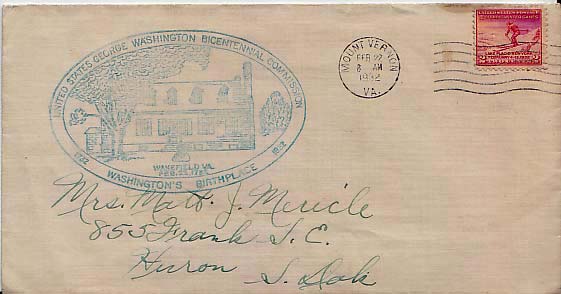 UNITED STATES GEORGE WASHINGTON BICENTENNIAL COMMISSION
1732 1932
WAKEFIELD VA.
FEB. 22, 1732
WASHINGTON'S BIRTHPLACE
MOUNT VERNON
FEB 22
8 AM
1932
VA.
UNITED STATES POSTAGE
LAKE PLACID NEW YORK
2 2
Mrs. Matt. J. Mericle
855 Frank S. E.
Huron
S. Dak